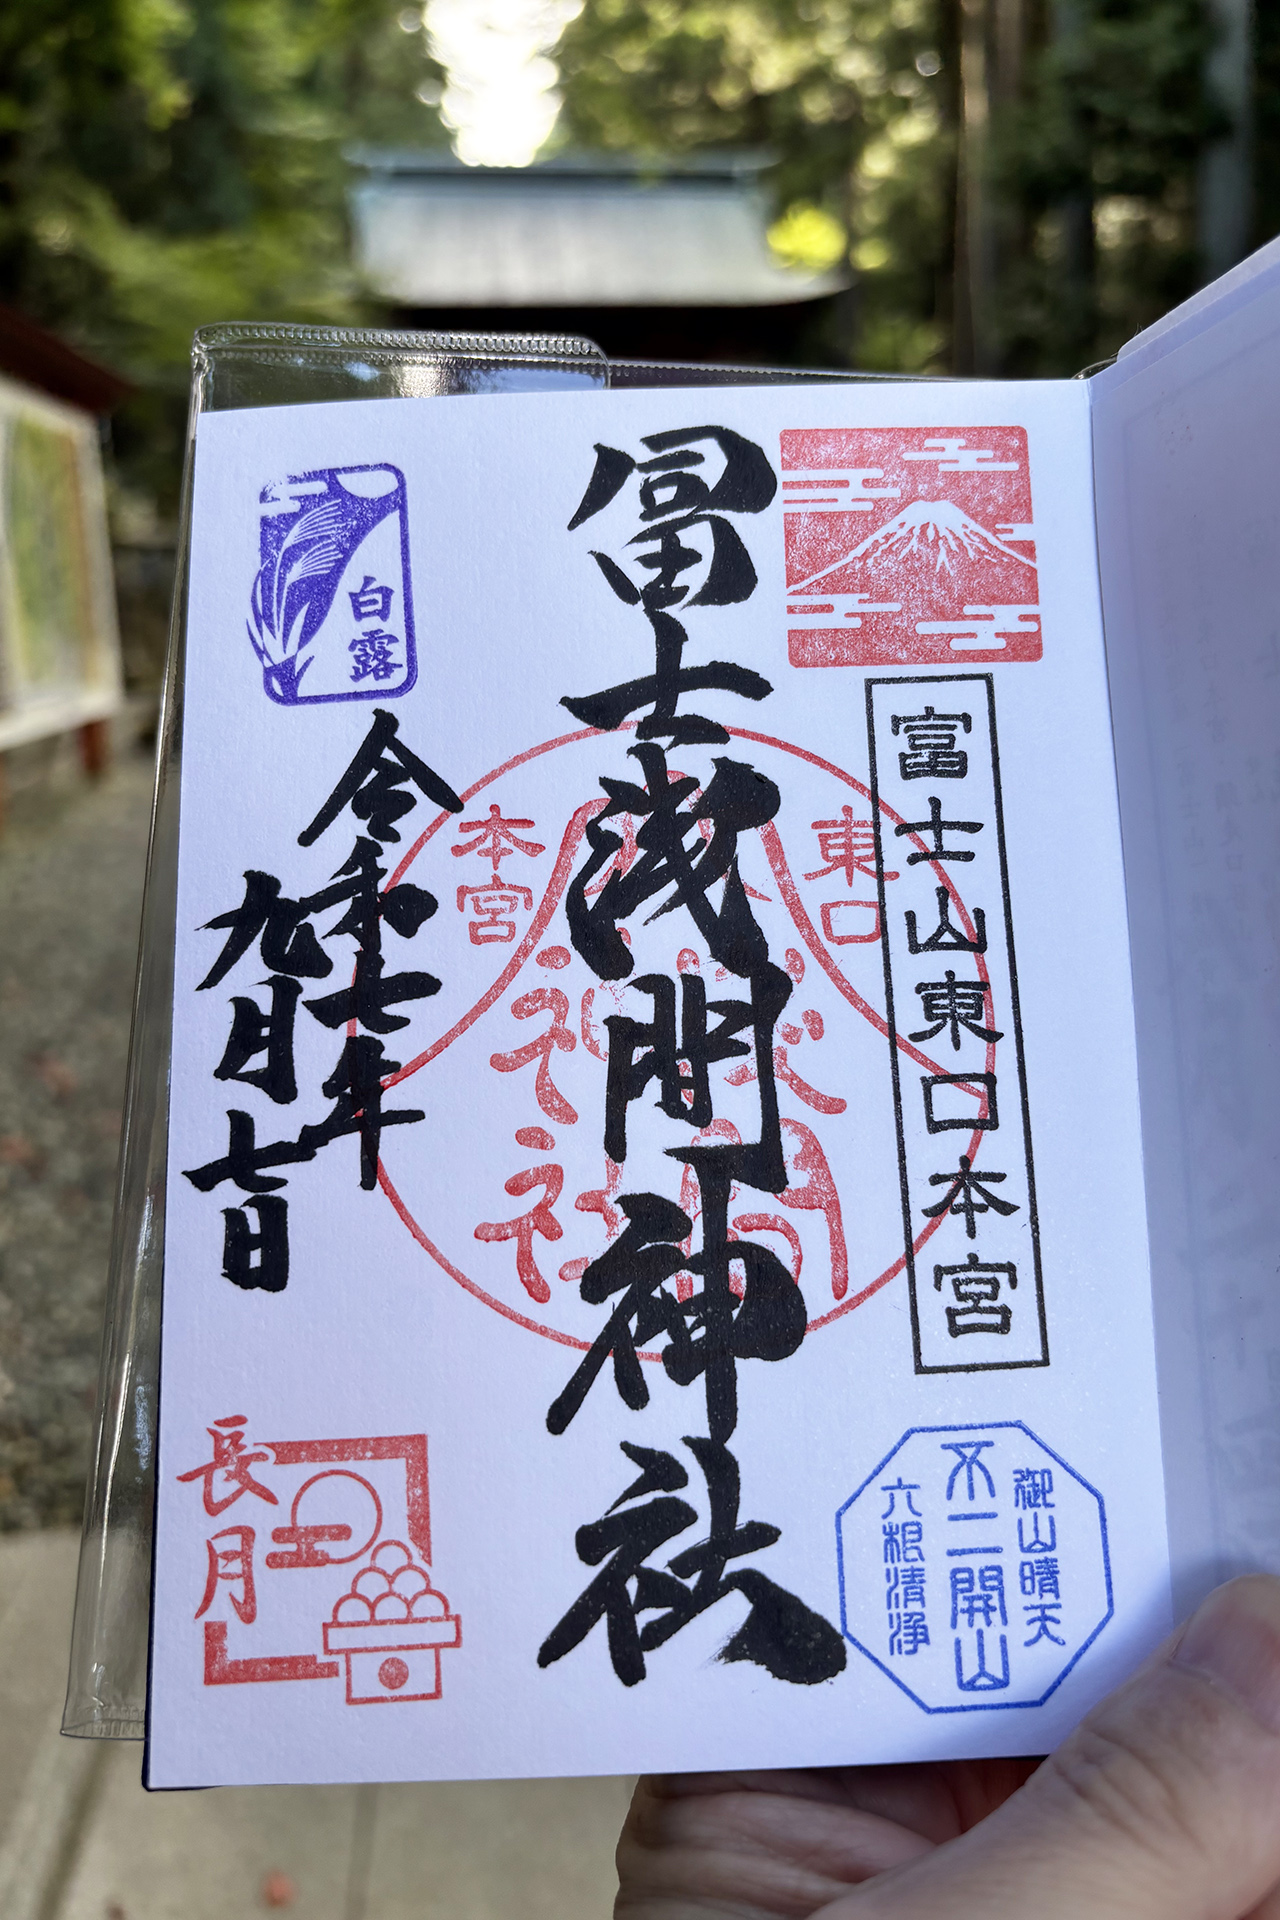 冨士浅間神社
富士山東口本宮
東口
本宮
御山晴天
不二開山
六根清浄
白露
令和七年
九月七日
長月